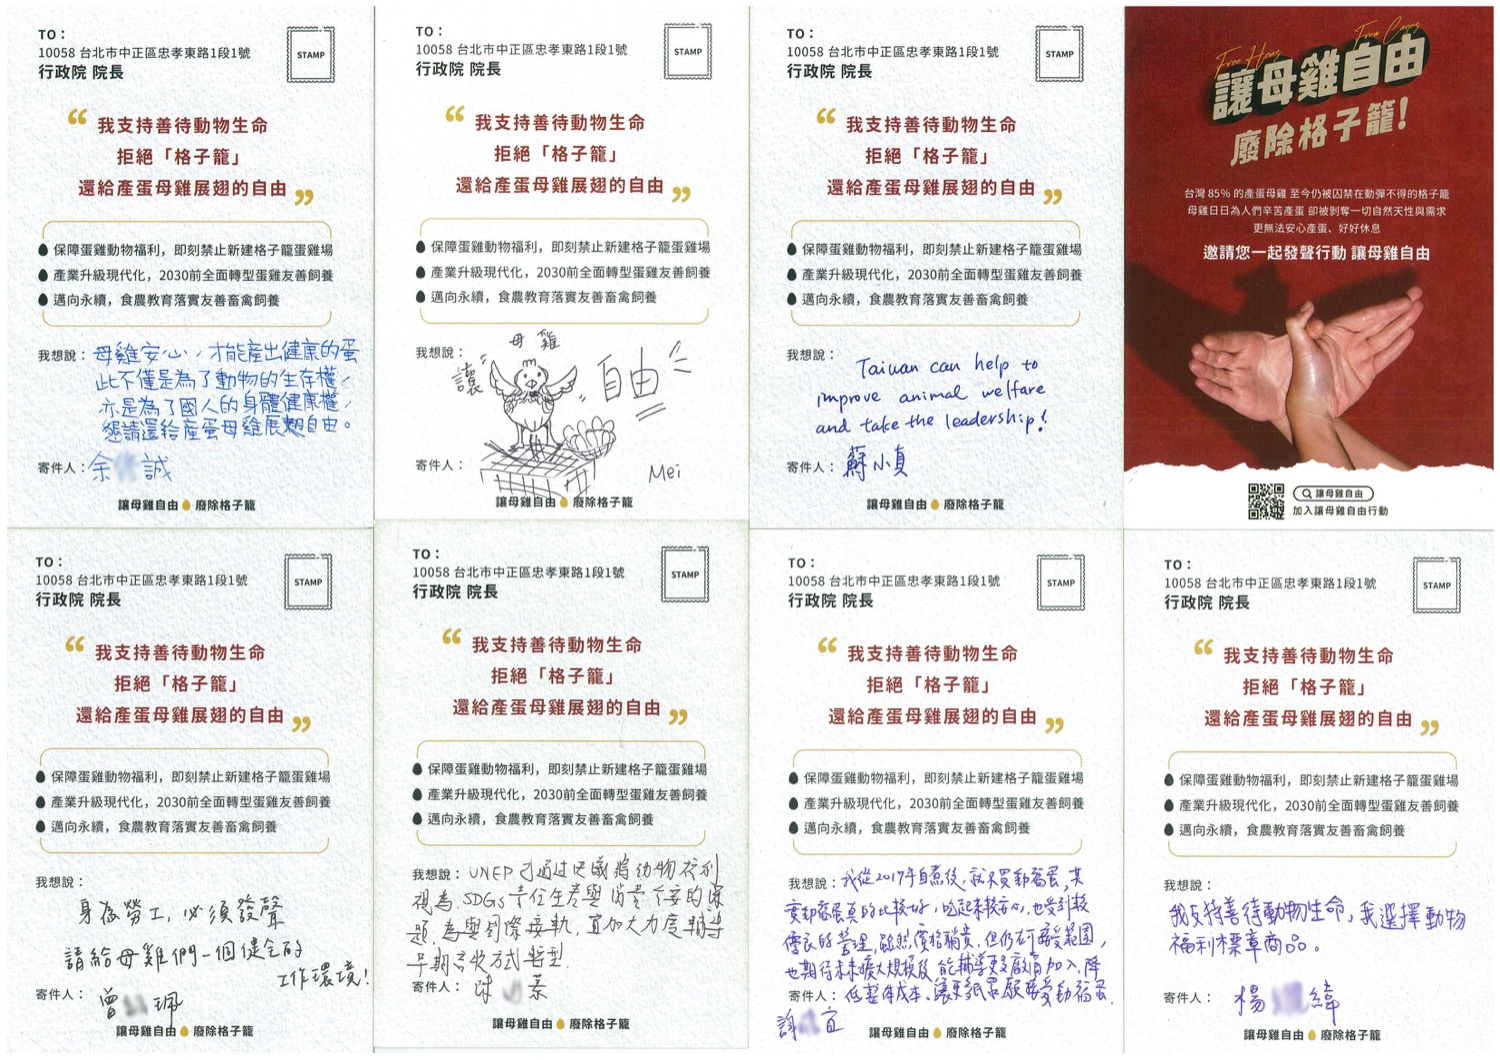 TO：
10058 台北市中正區忠孝東路1段1號
行政院 院長
STAMP
“ 我支持善待動物生命
拒絕「格子籠」
還給產蛋母雞展翅的自由 ”
保障蛋雞動物福利，即刻禁止新建格子籠蛋雞場
產業升級現代化，2030前全面轉型蛋雞友善飼養
邁向永續，食農教育落實友善畜禽飼養
我想說：母雞安心，才能產出健康的蛋
此不僅是為了動物的生存權，
亦是為了國人的身體健康權，
懇請還給產蛋母雞展翅自由。
寄件人：余 誠
讓母雞自由 廢除格子籠
TO：
10058 台北市中正區忠孝東路1段1號
行政院 院長
STAMP
“ 我支持善待動物生命
拒絕「格子籠」
還給產蛋母雞展翅的自由 ”
保障蛋雞動物福利，即刻禁止新建格子籠蛋雞場
產業升級現代化，2030前全面轉型蛋雞友善飼養
邁向永續，食農教育落實友善畜禽飼養
我想說：
讓 母雞 自由
寄件人：
Mei
讓母雞自由 廢除格子籠
TO：
10058 台北市中正區忠孝東路1段1號
行政院 院長
STAMP
“ 我支持善待動物生命
拒絕「格子籠」
還給產蛋母雞展翅的自由 ”
保障蛋雞動物福利，即刻禁止新建格子籠蛋雞場
產業升級現代化，2030前全面轉型蛋雞友善飼養
邁向永續，食農教育落實友善畜禽飼養
我想說：
Taiwan can help to
improve animal welfare
and take the leadership!
寄件人：蘇小貞
讓母雞自由 廢除格子籠
Free Hens Free Cages
讓母雞自由
廢除格子籠！
台灣 85% 的產蛋母雞 至今仍被囚禁在動彈不得的格子籠
母雞日日為人們辛苦產蛋 卻被剝奪一切自然天性與需求
更無法安心產蛋、好好休息
邀請您一起發聲行動 讓母雞自由
讓母雞自由
加入讓母雞自由行動
TO：
10058 台北市中正區忠孝東路1段1號
行政院 院長
STAMP
“ 我支持善待動物生命
拒絕「格子籠」
還給產蛋母雞展翅的自由 ”
保障蛋雞動物福利，即刻禁止新建格子籠蛋雞場
產業升級現代化，2030前全面轉型蛋雞友善飼養
邁向永續，食農教育落實友善畜禽飼養
我想說：
身為勞工，必須發聲
請給母雞們一個健全的
工作環境！
寄件人：曾 珮
讓母雞自由 廢除格子籠
TO：
10058 台北市中正區忠孝東路1段1號
行政院 院長
STAMP
“ 我支持善待動物生命
拒絕「格子籠」
還給產蛋母雞展翅的自由 ”
保障蛋雞動物福利，即刻禁止新建格子籠蛋雞場
產業升級現代化，2030前全面轉型蛋雞友善飼養
邁向永續，食農教育落實友善畜禽飼養
我想說：UNEP已通過決議將動物福利
視為SDGs責任生產與消費 的課
題，為與國際接軌，宜加大力度輔導
早期 方式轉型.
寄件人：
讓母雞自由 廢除格子籠
TO：
10058 台北市中正區忠孝東路1段1號
行政院 院長
STAMP
“ 我支持善待動物生命
拒絕「格子籠」
還給產蛋母雞展翅的自由 ”
保障蛋雞動物福利，即刻禁止新建格子籠蛋雞場
產業升級現代化，2030前全面轉型蛋雞友善飼養
邁向永續，食農教育落實友善畜禽飼養
我想說：我從2017年自煮後，就只買動福蛋，其
實動福蛋真的比較好，吃起來較安心，也受到較
優良的管理，雖然價格稍貴，但仍在可接受範圍，
也期待未來擴大規模後，能輔導更多廠商加入，降
低整體成本、讓更多 願 動福蛋.
寄件人：
謝 宜
讓母雞自由 廢除格子籠
TO：
10058 台北市中正區忠孝東路1段1號
行政院 院長
STAMP
“ 我支持善待動物生命
拒絕「格子籠」
還給產蛋母雞展翅的自由 ”
保障蛋雞動物福利，即刻禁止新建格子籠蛋雞場
產業升級現代化，2030前全面轉型蛋雞友善飼養
邁向永續，食農教育落實友善畜禽飼養
我想說：
我支持善待動物生命，我選擇動物
福利標章商品。
寄件人：楊 緯
讓母雞自由 廢除格子籠